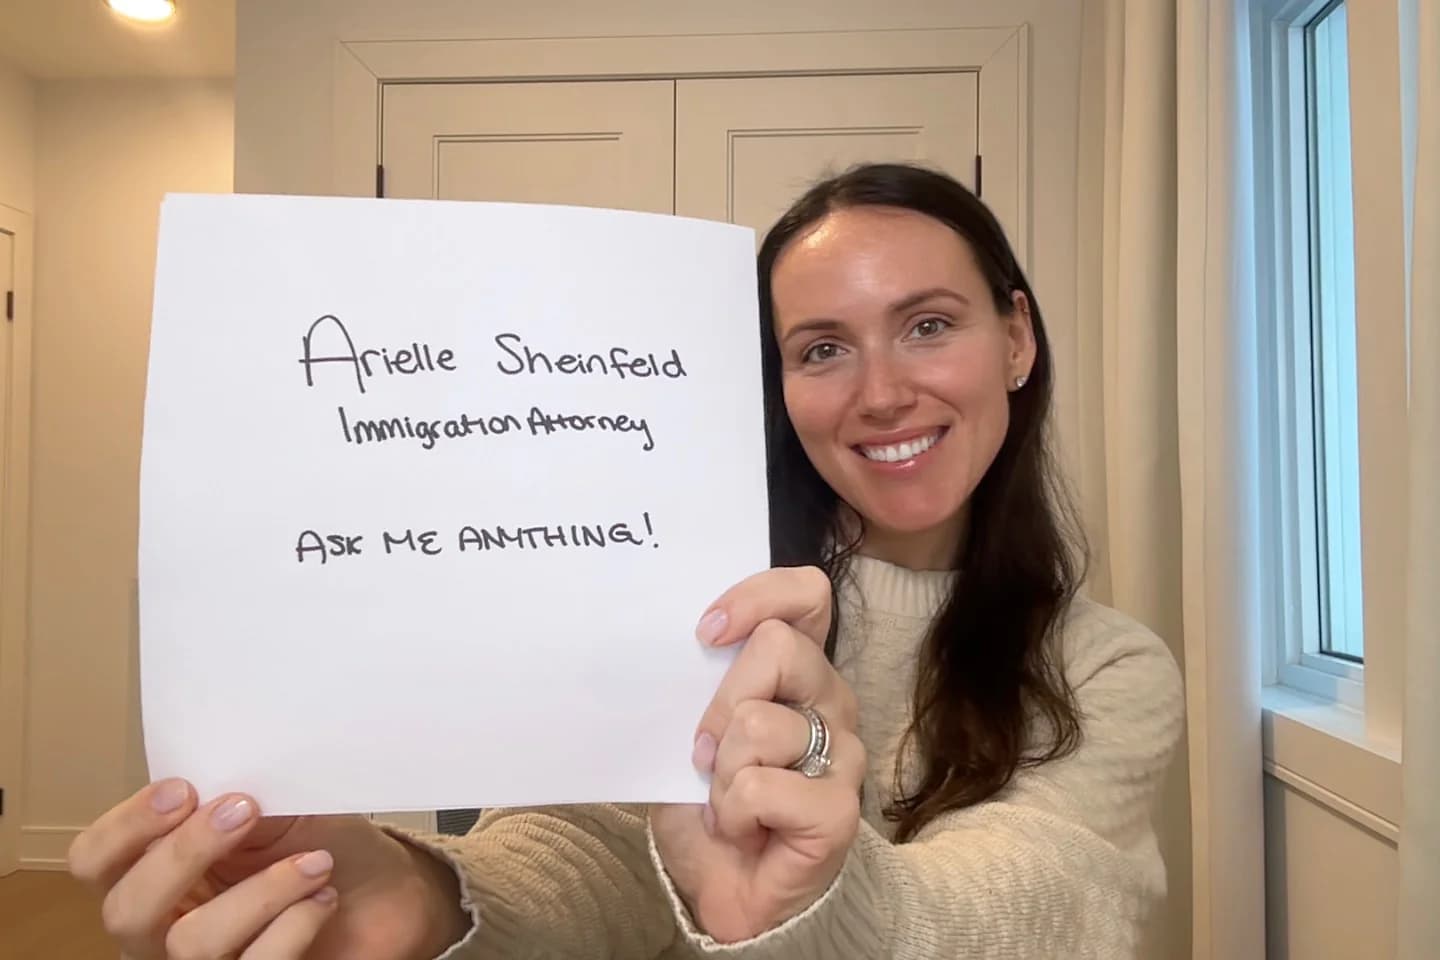 Arielle Sheinfeld
Immigration Attorney
ASK ME ANYTHING!